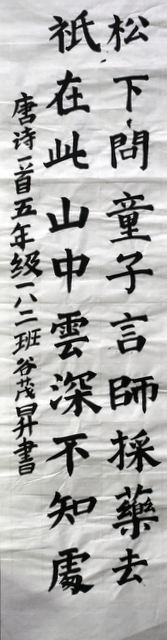 松下問童子言師採藥去
祇在此山中雲深不知處
唐诗一首五年级一八二班谷茂昇書